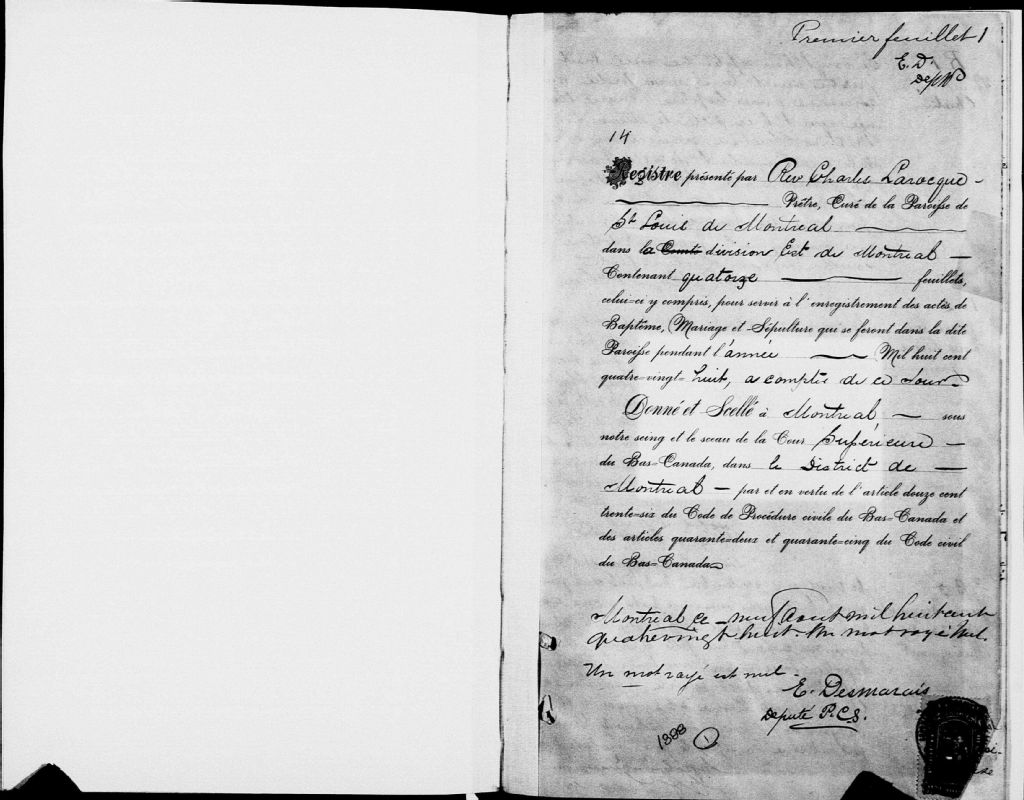 Premier feuillet 1
E. D.
Dep
14
Registre présenté par Rev Charles Larocque
Prêtre, Curé de la Paroisse de
St Louis de Montreal
dans la Comté division Est de Montreal
Contenant quatorze feuillets,
celui-ci y compris, pour servir à l'enregistrement des actes de
Baptême, Mariage et Sépulture qui se feront dans la dite
Paroisse pendant l'année Mil huit cent
quatre-vingt-huit, a compter de ce Jour
Donné et Scellé à Montreal sous
notre seing et le sceau de la Cour Supérieure
du Bas-Canada, dans le District de
Montreal par et en vertu de l'article douze cent
trente-six du Code de Procédure civile du Bas-Canada et
des articles quarante-deux et quarante-cinq du Code civil
du Bas-Canada
Montreal ce neuf Aout mil huit cent
quatrevingt huit. Un mot rayé nul.
Un mot rayé est nul.
E. Desmarais
Député P.C.S.
1888 1